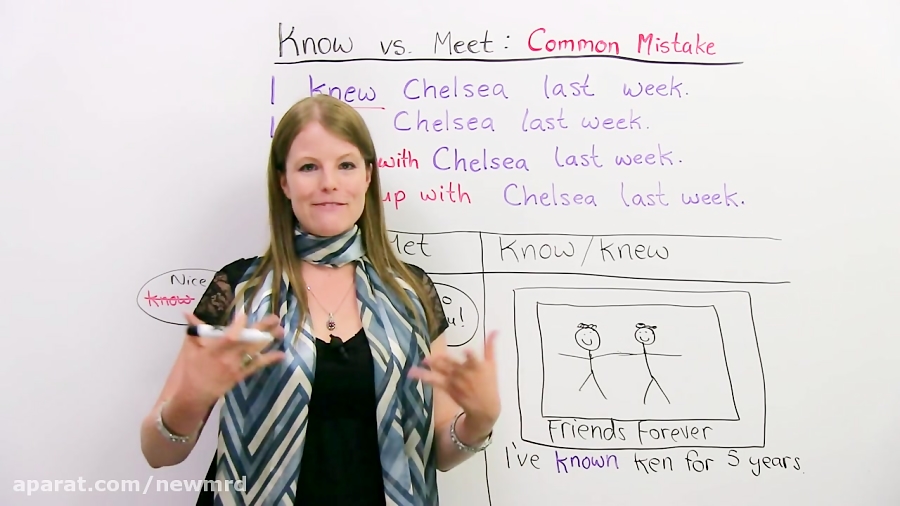 Know vs. Meet: Common Mistake
I knew Chelsea last week.
I Chelsea last week.
with Chelsea last week.
up with Chelsea last week.
Met
Know/Knew
Nice
know
Friends Forever
I've known Ken for 5 years.
aparat.com/newmrd